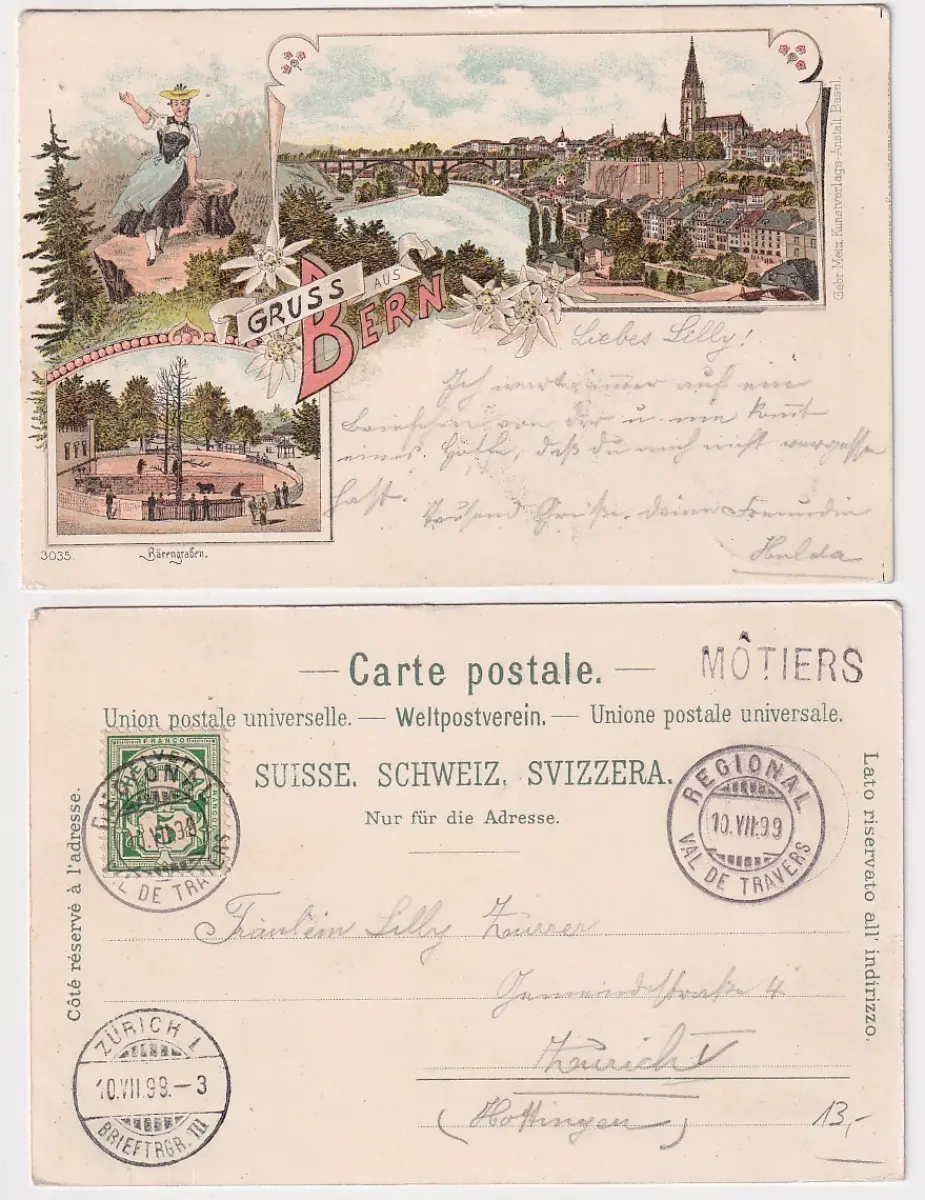 GRUSS AUS BERN
Gebr. Metz, Kunstverlags-Anstalt, Basel.
Liebes Lilly!
Ich warte immer auf ein
Brieflein von Dir u. nie kommt
eines. Hoffe, daß du mich nicht vergessen
hast.
Tausend Grüße. Deine Freundin
Hulda
3035.
Bärengraben.
— Carte postale. —
MÔTIERS
Union postale universelle. — Weltpostverein. — Unione postale universale.
SUISSE. SCHWEIZ. SVIZZERA.
Nur für die Adresse.
FRANCO
HELVETIA
FRANCO
5
REGIONAL
VAL DE TRAVERS
REGIONAL
10.VII.99
VAL DE TRAVERS
Côté réservé à l'adresse.
Lato riservato all' indirizzo.
Fräulein Lilly Zürrer
Gemeindestraße 4
Zürich V
(Hottingen)
13,-
ZÜRICH 1
10.VII.99.–3
BRIEFTRGR. III